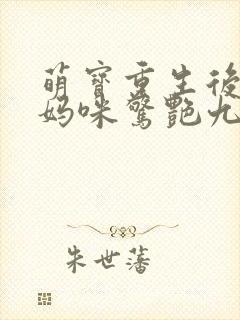 萌寶重生後
媽咪驚艷九
朱世藩